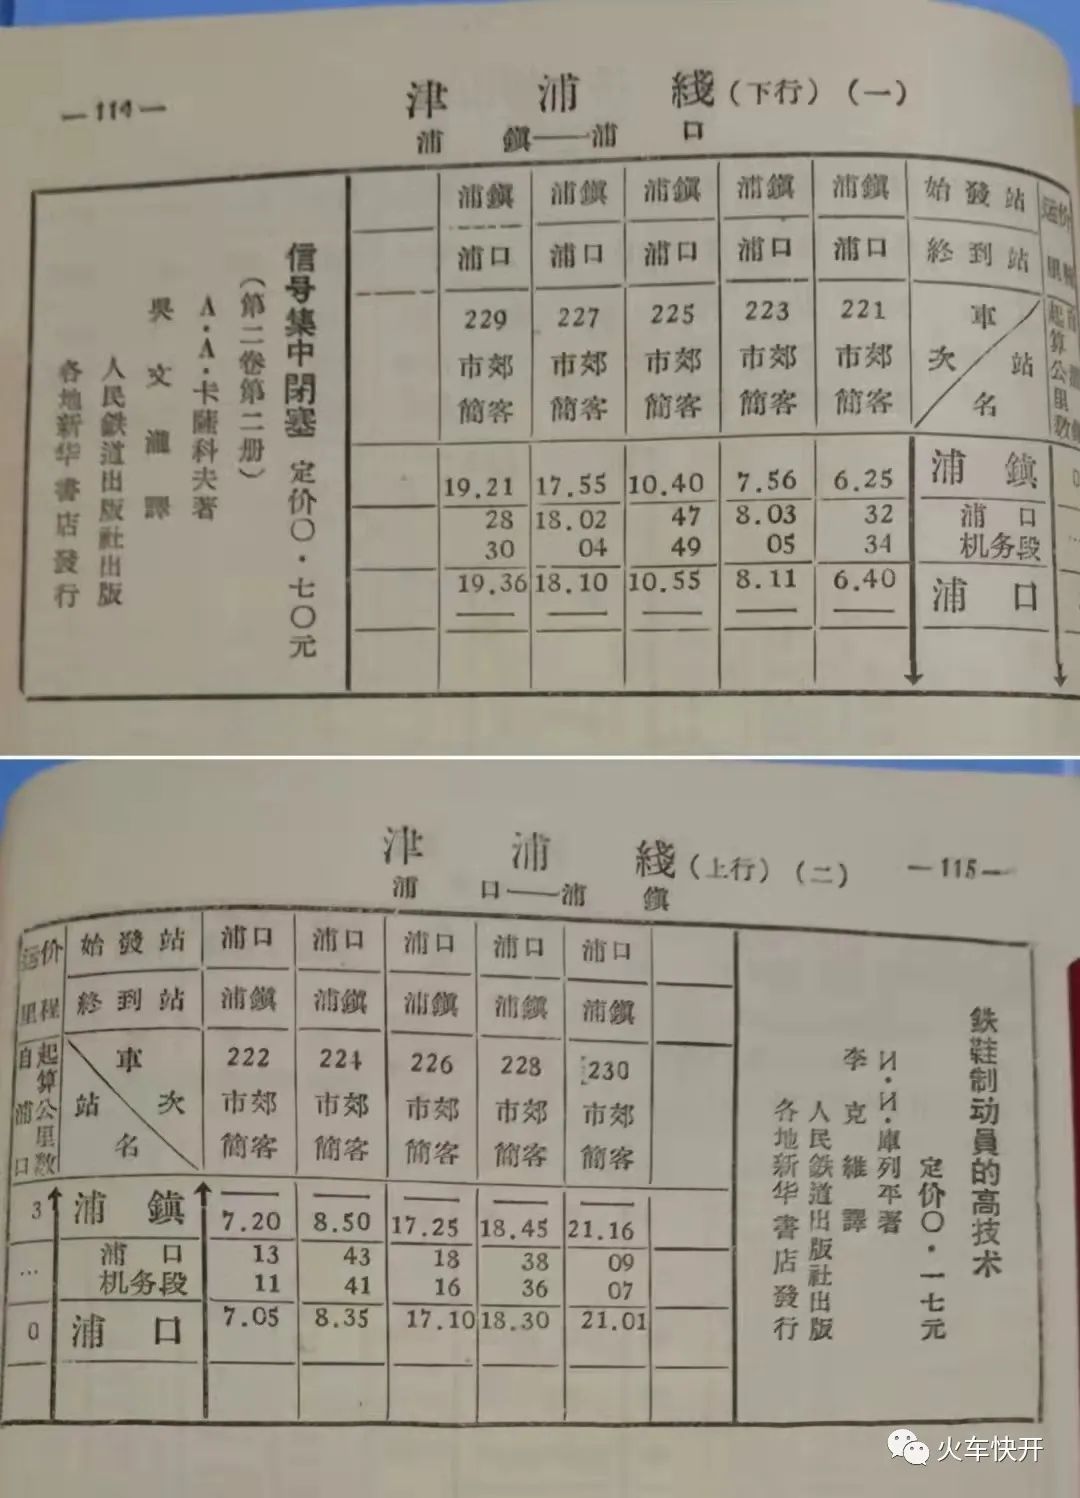 —114—
津浦綫(下行)(一)
浦鎭——浦口
浦鎭 浦鎭 浦鎭 浦鎭 浦鎭 始發站 运价
浦口 浦口 浦口 浦口 浦口 終到站 里
229 227 225 223 221 車次
市郊 市郊 市郊 市郊 市郊 站名
簡客 簡客 簡客 簡客 簡客 起算公里数
19.21 17.55 10.40 7.56 6.25 浦鎭 0
28 18.02 47 8.03 32 浦口
30 04 49 05 34 机务段 …
19.36 18.10 10.55 8.11 6.40 浦口
信号集中閉塞 定价〇·七〇元
(第二卷第二册)
A·A·卡薩科夫著
吳文瀧譯
人民鉄道出版社出版
各地新华書店發行
津浦綫(上行)(二)
—115—
浦口——浦鎭
运价 始發站 浦口 浦口 浦口 浦口 浦口
里程 終到站 浦鎭 浦鎭 浦鎭 浦鎭 浦鎭
自浦口起算公里数 車次 222 224 226 228 230
站名 市郊 市郊 市郊 市郊 市郊
簡客 簡客 簡客 簡客 簡客
3 浦鎭 7.20 8.50 17.25 18.45 21.16
浦口 13 43 18 38 09
… 机务段 11 41 16 36 07
0 浦口 7.05 8.35 17.10 18.30 21.01
鉄鞋制动員的高技术
定价〇·一七元
И·И·庫列平著
李克維譯
人民鉄道出版社出版
各地新华書店發行
火车快开